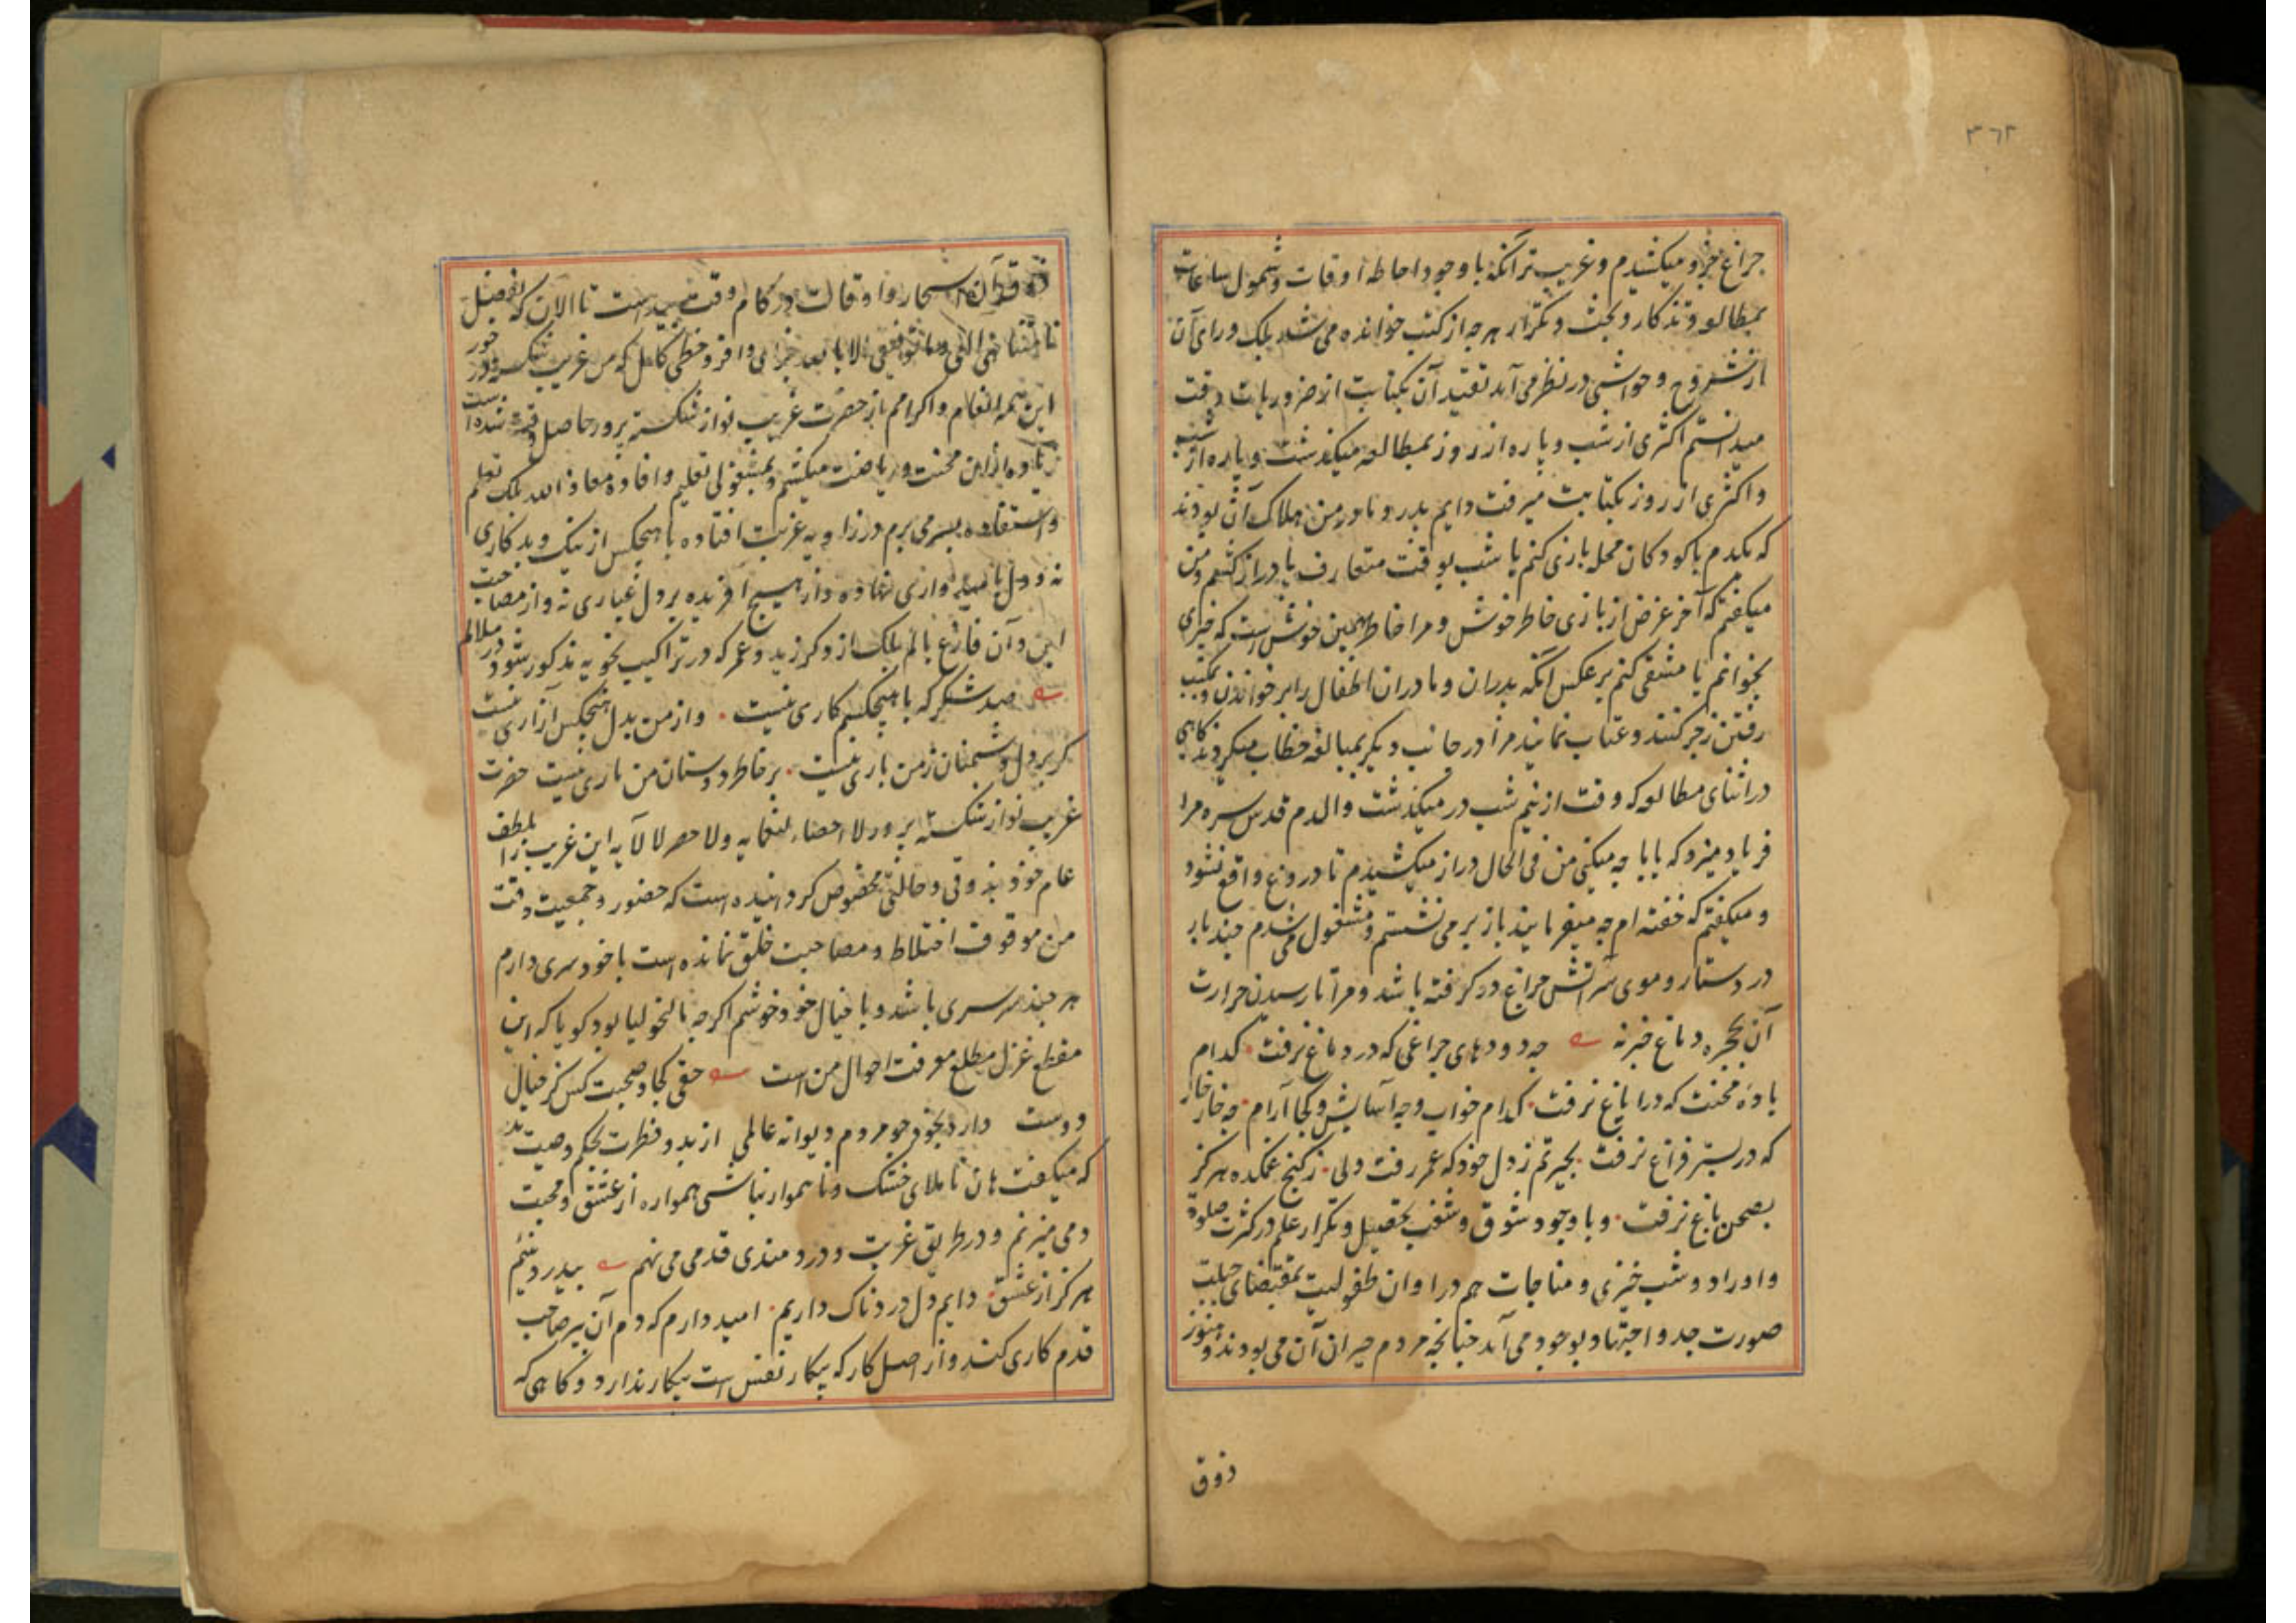 ٣٦٣
چراغ بخرو میکشیدم و غریب تر آنکه با وجود احاطه اوقات و شمول ساعات
بمطالعه و تذکار و بحث و تکرار هر چه از کتب خوانده می شد بلک ورای آن
از شروح و حواشی در نظر می آمد تقیید آن بکتابت از ضروریات وقت
میدانستم اکثری از شب و پاره از روز بمطالعه میکذشت و پاره از شب
و اکثری از روز بکتابت میرفت دایم پدر و مادر من هلاک آن بودند
که یکدم با کودکان محله بازی کنم یا شب بوقت متعارف پا دراز کشم و من
میکفتم که آخر غرض از بازی خاطر خوش و مرا خاطر بهمین خوش است که چیزی
بخوانم یا مشقی کنم برعکس آنکه پدران و مادران اطفال را بر خواندن و بمکتب
رفتن زجر کنند و عتاب نمایند مرا در جانب دیکر بمبالغه خطاب میکردند کاهی
در اثنای مطالعه که وقت از نیم شب در میکذشت والدم قدس سره مرا
فریاد میزد که بابا چه میکنی من فی الحال دراز میکشیدم تا دروغ واقع نشود
و میکفتم که خفته ام چه میفرمایند باز بر می نشستم و مشغول می شدم چند بار
در دستار و موی سر آتش چراغ در کرفته باشد و مرا تا رسیدن حرارت
آن بحجره دماغ خبر نه چه دودهای چراغی که در دماغ نرفت کدام
باده محنت که در ایاغ نرفت کدام خواب و چه آسایش و کجا آرام چه خار خار
که در بستر فراغ نرفت بحیرتم ز دل خود که عمر رفت ولی ز کنج غمکده هرکز
بصحن باغ نرفت و با وجود شوق و شغف بتحصیل و تکرار علم در کثرت صلوة
و اوراد و شب خیزی و مناجات هم در اوان طفولیت بمقتضای جبلت
صورت جد و اجتهاد بوجود می آمد چنانچه مردم حیران آن می بودند و هنوز
ذوق
ذوق آن اسحار و اوقات در کام وقت پیداست تا الان که بفضل
نامتناهی الهی و ما توفیقی الا بالله جزای وافر و حظی کامل که من غریب شکسته در خور
این همه انعام و اکرامم از حضرت غریب نواز شکسته پرور حاصل وقت شده است
زیاده از این محنت و ریاضت میکشم و بمشغولی تعلیم و افاده معاذ الله بلک تعلم
و استفاده بسر می برم در زاویه غربت افتاده با هیچکس از نیک و بد کاری
نه و دل بامیدواری نهاده و از هیچ آفریده بر دل غباری نه و از مصاحبت
این و آن فارغ بالم بلک از ذکر زید و عمر که در تراکیب نحویه مذکور شود در ملالم
صد شکر که با هیچکسم کاری نیست و از من بدل هیچکس آزاری نیست
کر بر دل دشمنان ز من باری نیست بر خاطر دوستان من باری نیست حضرت
غریب نواز شکسته پرور لا احصاء لنعمایه و لا حصر لآلایه این غریب را بلطف
عام خود بذوقی و حالتی مخصوص کردانیده است که حضور و جمعیت وقت
من موقوف اختلاط و مصاحبت خلق نمانده است با خود سری دارم
هر چند سرسری باشد و با خیال خود خوشم اکرچه مالیخولیا بود کویا که این
مقطع غزل مطلع معرفت احوال من است حقی کجا و صحبت کس کز خیال
دوست دارد بخود چو مردم دیوانه عالمی از بدو فطرت بحکم وصیت پدر
که میکفت هان تا ملای خشک و ناهموار نباشی همواره از عشق و محبت
دمی میزنم و در طریق غربت و دردمندی قدمی می نهم بیدرد نئیم
هرکز از عشق دایم دل دردناک داریم امید دارم که دم آن پیر صاحب
قدم کاری کند و از اصل کار که پیکار نفس است بیکار ندارد و کاهی که